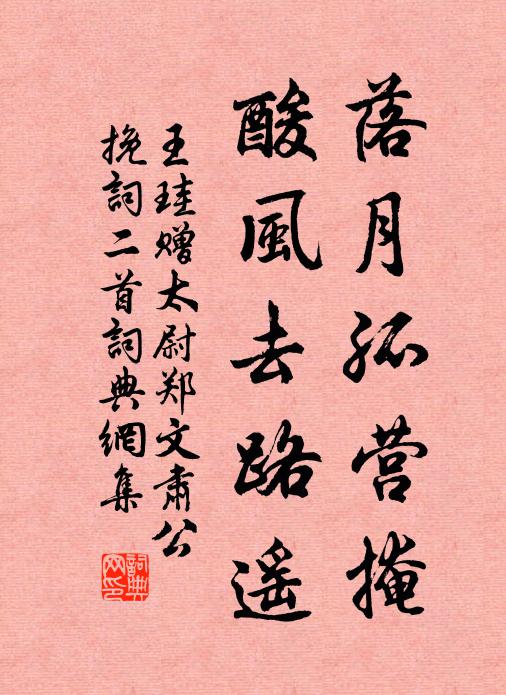 落月孤营掩
酸風去路遥
王珪赠太尉郑文肅公
挽詞二首詞典網集
詞典网印